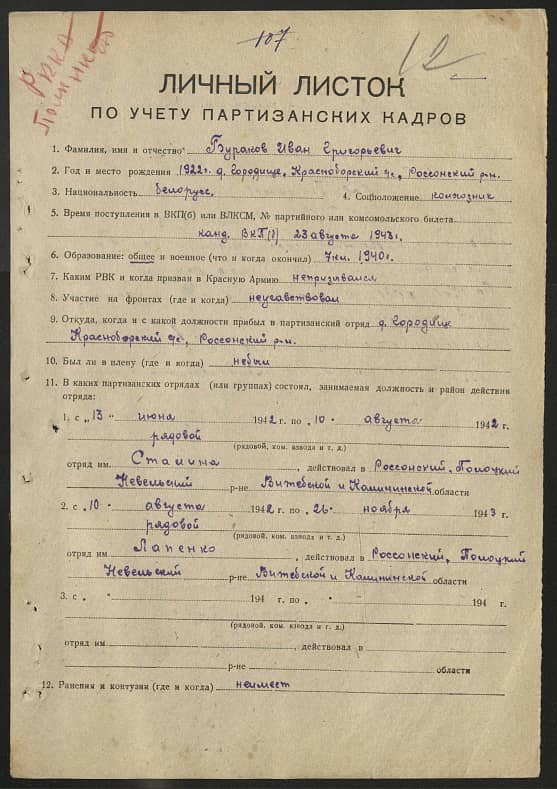 РККА
107
12
ЛИЧНЫЙ ЛИСТОК
ПО УЧЕТУ ПАРТИЗАНСКИХ КАДРОВ
1. Фамилия, имя и отчество Бураков Иван Григорьевич
2. Год и место рождения 1922г. д. Городище, Красноборский с/с, Россонский р-н.
3. Национальность белорусс. 4. Соцположение колхозник
5. Время поступления в ВКП(б) или ВЛКСМ, № партийного или комсомольского билета
канд. ВКП(б) 23 августа 1943г.
6. Образование: общее и военное (что и когда окончил) 7кл. 1940г.
7. Каким РВК и когда призван в Красную Армию непризывался
8. Участие на фронтах (где и когда) неучавствовал
9. Откуда, когда и с какой должности прибыл в партизанский отряд д. Городище
Красноборский с/с, Россонский р-н.
10. Был ли в плену (где и когда) небыл
11. В каких партизанских отрядах (или группах) состоял, занимаемая должность и район действия
отряда:
1. с „13 “ июня 1942 г. по „10 “ августа 1942 г.
рядовой
(рядовой, ком. взвода и т. д.)
отряд им. Сталина, действовал в Россонский, Полоцкий
Невельский р-не Витебской и Калининской области
2. с „10 “ августа 1942 г. по „26 “ ноября 1943 г.
рядовой
(рядовой, ком. взвода и т. д.)
отряд им Лапенко, действовал в Россонский, Полоцкий
Невельский р-не Витебской и Калининской области
3. с „ “ 194 г. по „ “ 194 г.
(рядовой, ком. взвода и т. д.)
отряд им., действовал в
р-не области
12. Ранения и контузии (где и когда) неимеет